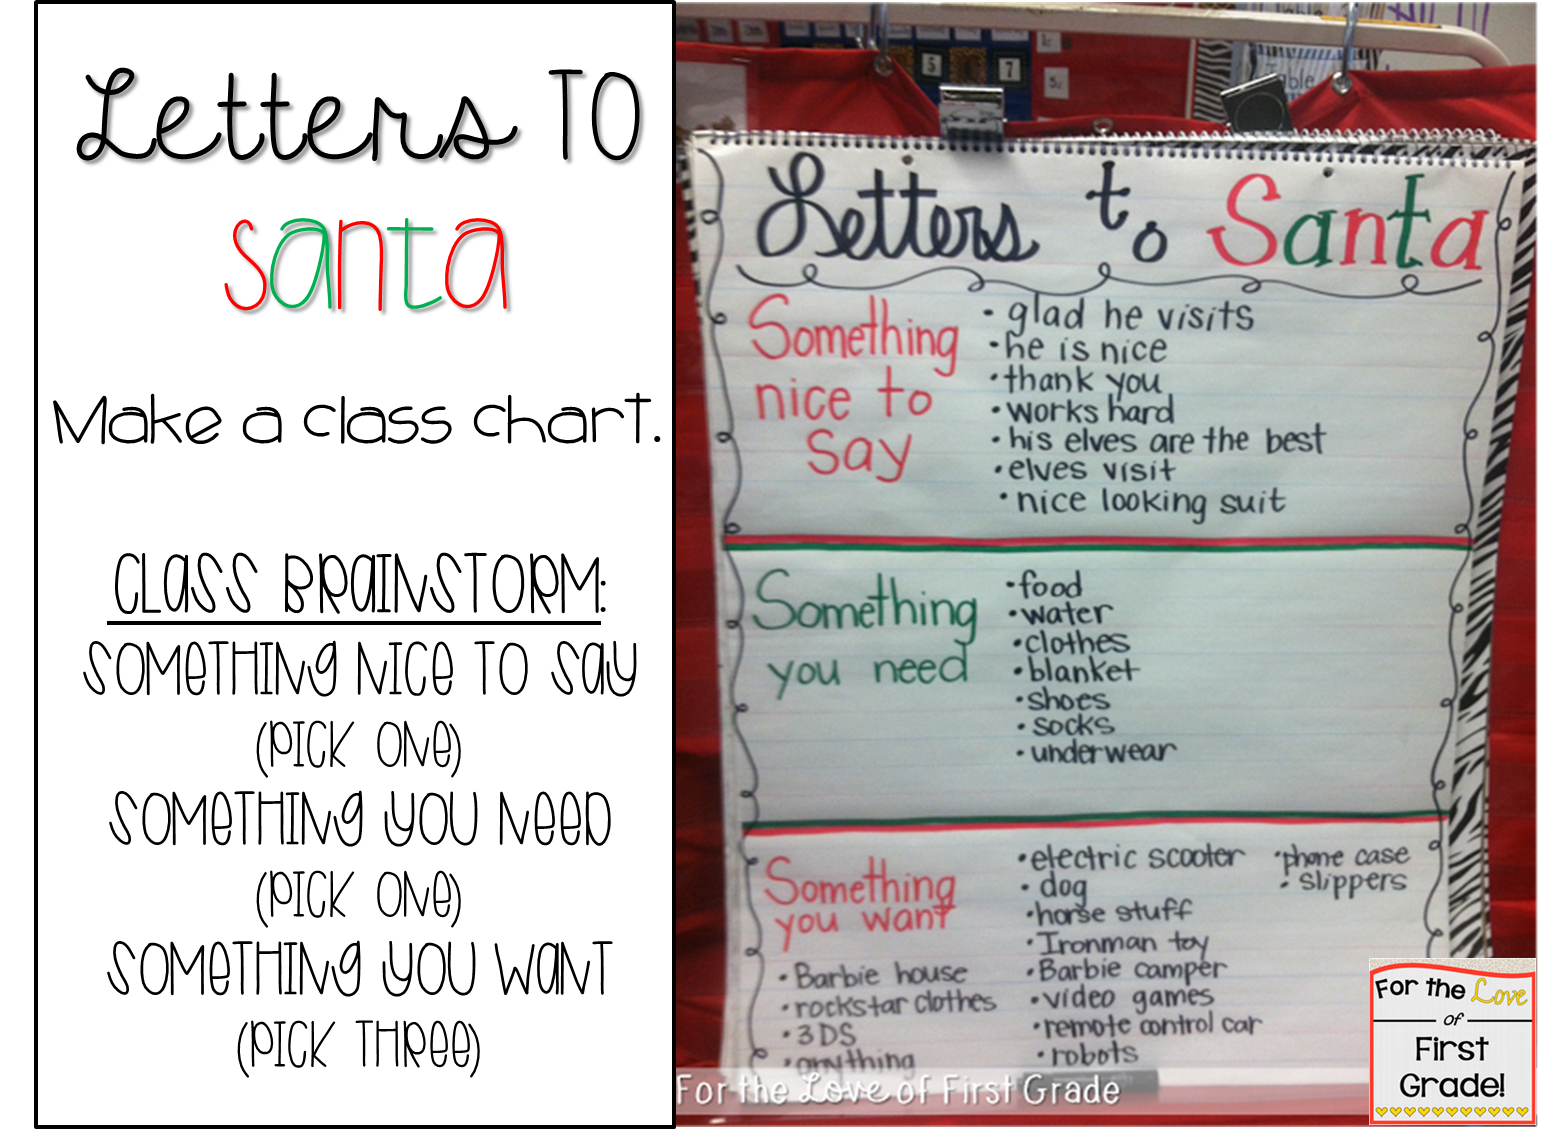 Letters TO
Santa
Make a class chart.
CLASS BRAINSTORM:
SOMETHING NICE TO SAY
(PICK ONE)
SOMETHING YOU NEED
(PICK ONE)
SOMETHING YOU WANT
(PICK THREE)
5
7
Table
Letters to Santa
Something
nice to
Say
• glad he visits
• he is nice
• thank you
• works hard
• his elves are the best
• elves visit
• nice looking suit
Something
you need
• food
• water
• clothes
• blanket
• shoes
• socks
• underwear
Something
you want
• Barbie house
• rockstar clothes
• 3DS
• anything
• electric scooter
• dog
• horse stuff
• Ironman toy
• Barbie camper
• video games
• remote control car
• robots
• phone case
• slippers
For the Love of First Grade
For the Love
of
First
Grade!